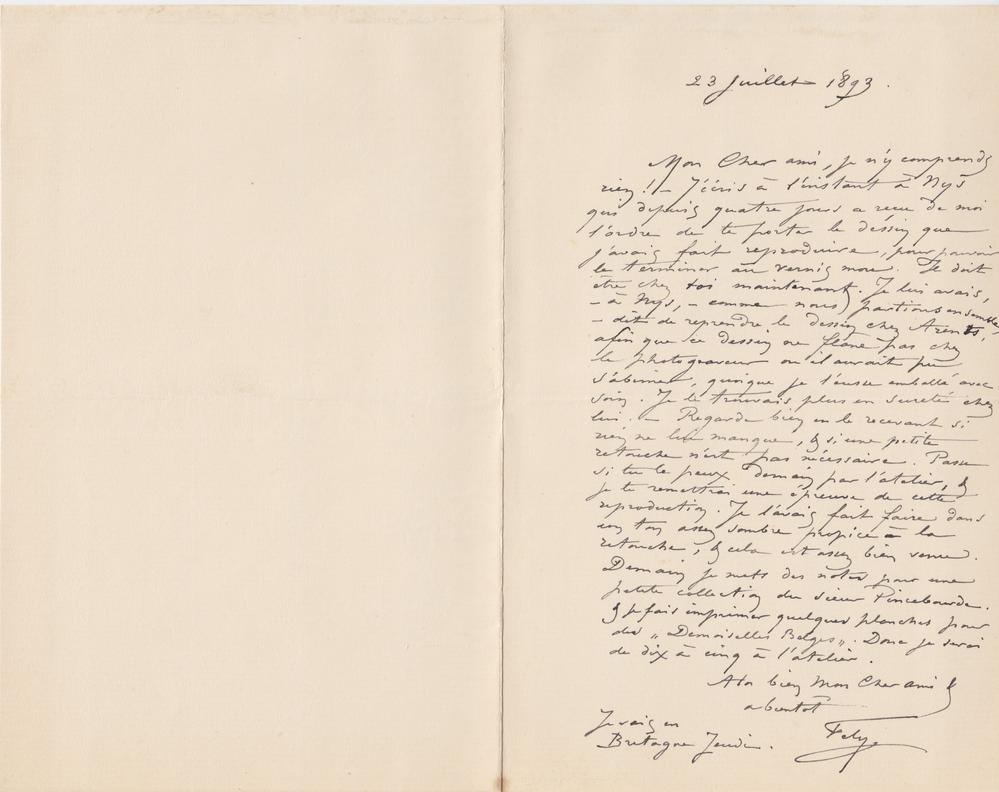 23 Juillet 1893.
Mon Cher ami, Je n'y comprends
rien ! – J'écris à l'instant à Nys
qui depuis quatre jours a reçu de moi
l'ordre de te porter le dessin que
j'avais fait reproduire, pour pouvoir
le terminer au vernis mou. Il doit
être chez toi maintenant. Je lui avais,
– à Nys, – comme nous partions ensemble,
– dit de reprendre le dessin chez Arents,
afin que ce dessin ne flane pas chez
le photograveur ou il aurait pu
s'abimer, quoique je l'eusse emballé avec
soin. Je le trouvais plus en sureté chez
lui. – Regarde bien en le recevant si
rien ne lui manque, & si une petite
retouche n'est pas nécessaire. Passe
si tu le peux demain par l'atelier, &
je te remettrai une épreuve de cette
reproduction. Je l'avais fait faire dans
un ton assez sombre propice à la
retouche, & cela est assez bien venu.
Demain je mets des notes pour une
petite collection du sieur Pincebourde.
& je fais imprimer quelques planches pour
des „Demoiselles Belges„. Donc je serai
de dix à cinq à l'atelier.
A toi bien Mon Cher ami &
a bientôt
Fély
Je vais en
Bretagne Jeudi.